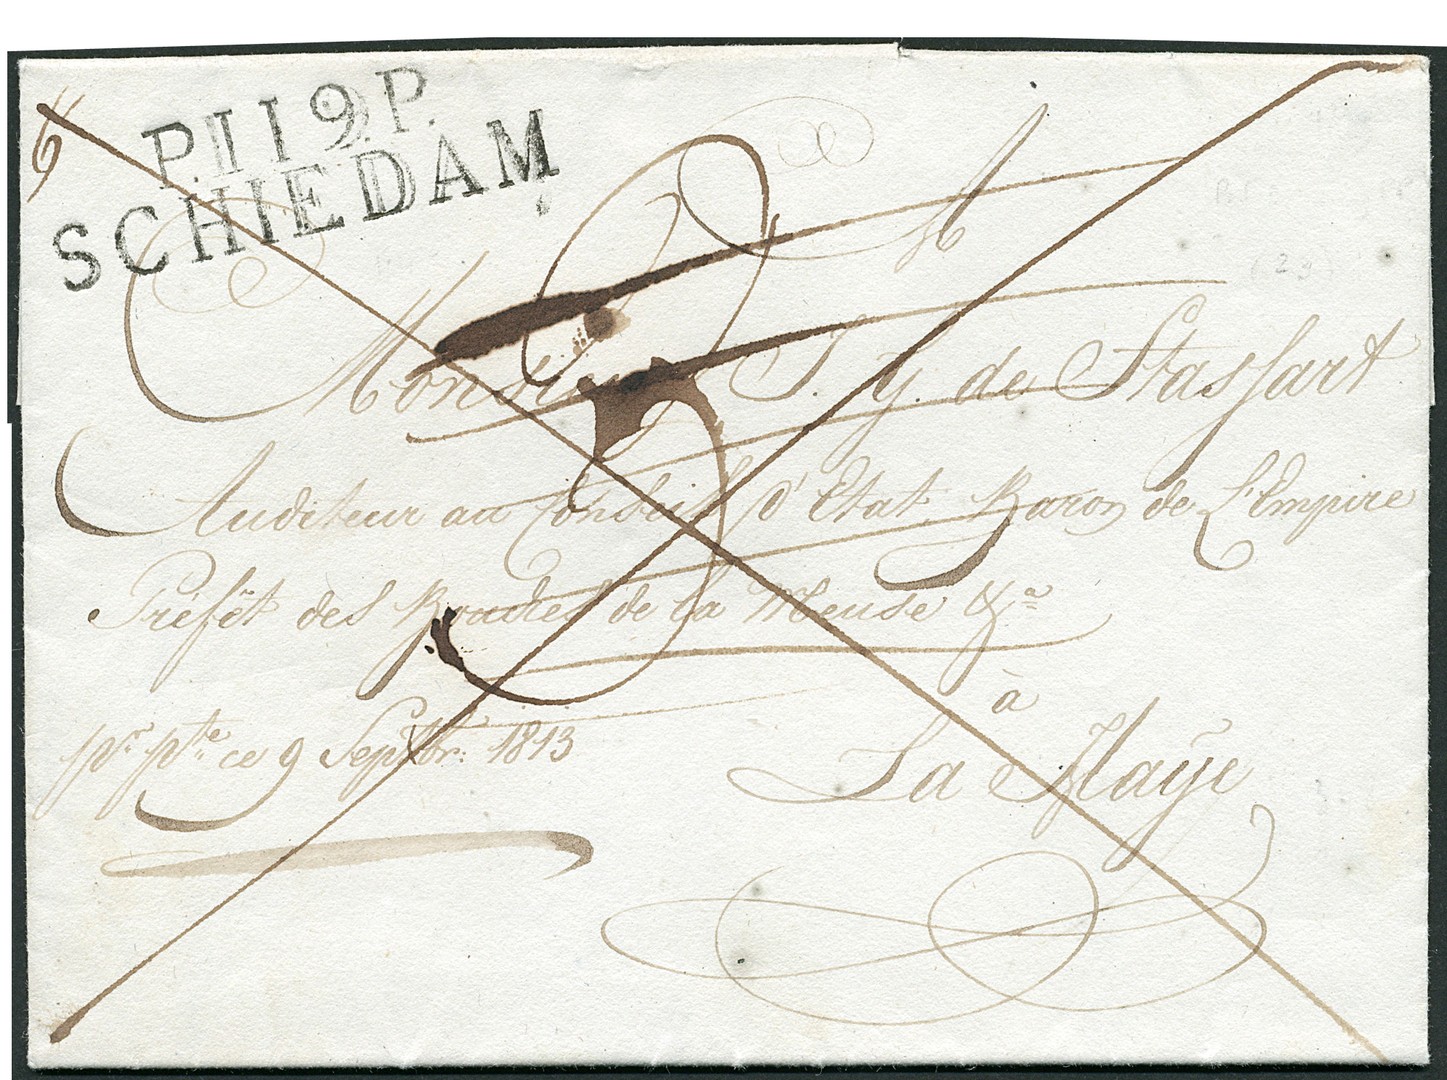 P.119.P.
SCHIEDAM
Monsieur J. G. de Stassart
Auditeur au Conseil d'Etat, Baron de L'Empire
Préfét des Bouches de la Meuse &a
à
La Haÿe
pr. pte. ce 9 Septbr: 1813